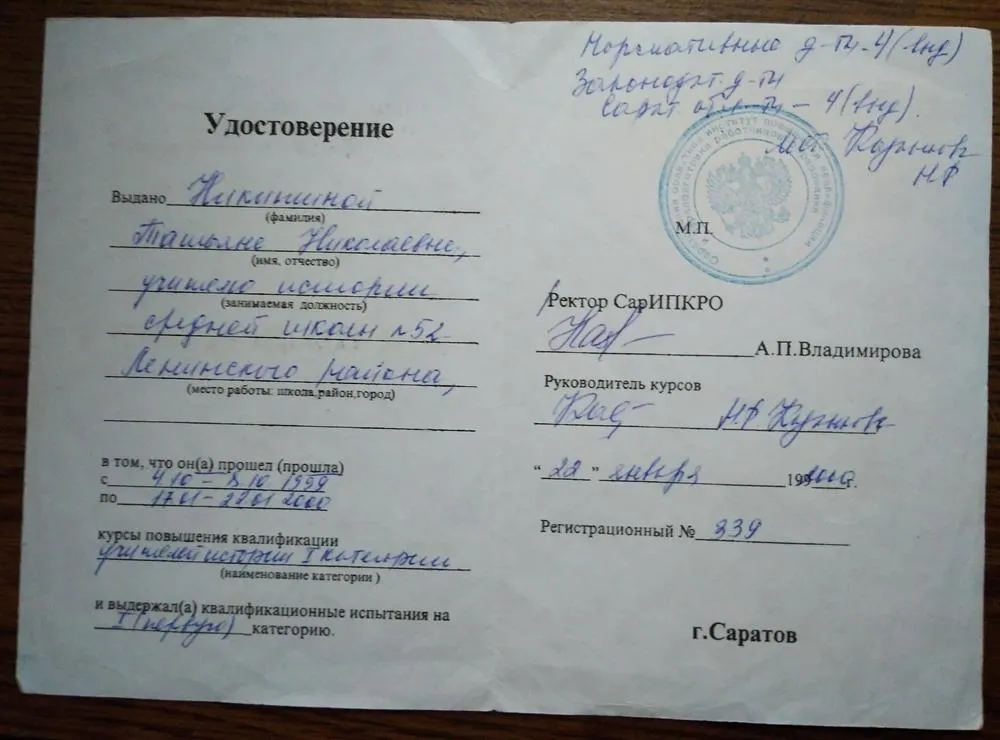 Удостоверение
Выдано Никитиной
(фамилия)
Татьяне Николаевне,
(имя, отчество)
учителю истории
(занимаемая должность)
средней школы №52
Ленинского района,
(место работы: школа,район,город)
в том, что он(а) прошел (прошла)
с 4.10 – 8.10 1999
по 17.01 – 22.01 2000
курсы повышения квалификации
учителей истории I категории
(наименование категории )
и выдержал(а) квалификационные испытания на
I (первую) категорию.
Нормативные д-ты - 4 (
Законодат. д-ты
– 4 (
М.П.
Ректор СарИПКРО
А.П.Владимирова
Руководитель курсов
Н.Ф.
" 22 " января 199 2000 г.
Регистрационный № 339
г.Саратов